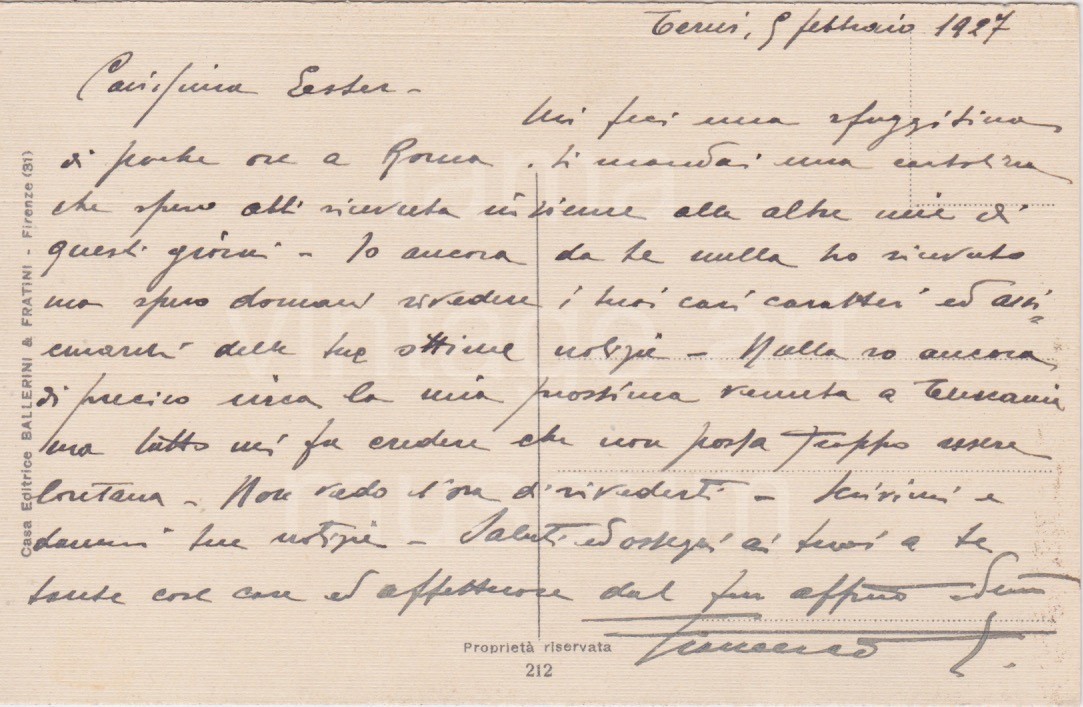 Terni, 9 febbraio 1927
Carissima Ester -
Mi feci una sfuggitina
di poche ore a Roma. ti mandai una cartolina
che spero abbi ricevuta insieme alle altre mie di
questi giorni - Io ancora da te nulla ho ricevuto
ma spero domani rivedere i tuoi cari caratteri ed assi=
curarmi delle tue ottime notizie - Nulla so ancora
di preciso circa la mia prossima venuta a Tuscania
ma tutto mi fa credere che non possa troppo essere
lontana - Non vedo l'ora di rivederti - Scrivimi e
dammi tue notizie - Saluti ed ossequi ai tuoi a te
tante cose care ed affettuose dal tuo affmo
Francesco
Casa Editrice BALLERINI & FRATINI - Firenze (31)
Proprietà riservata
212
fama
vintage art
museum